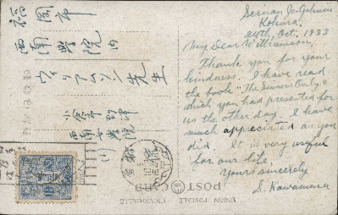 福岡市
西南学院内
ウィリアムソン先生
小倉市到津
西南女学院
Kokura.
24th, Oct. 1933
My Dear Williamson,
Thank you for your
kindness. I have read
the book "The Saviour's Only,"
which you had presented for
us the other day. I have
much appreciated as you
did. It is very useful
for our life,
yours sincerely
S. Kawamura
POST CARD
UNION POSTALE UNIVERSELLE